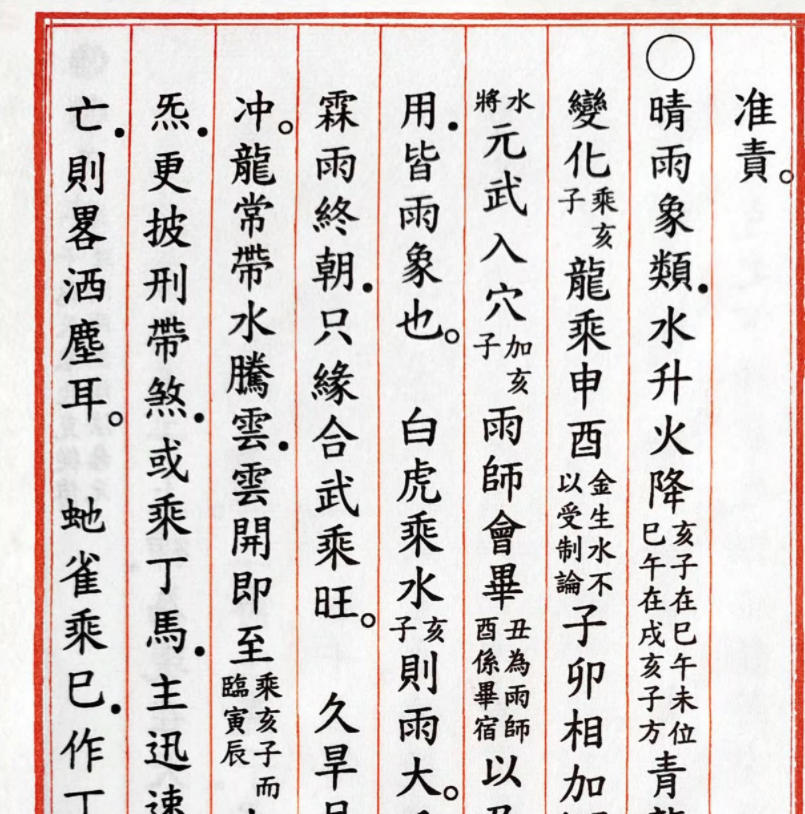 准責。
○晴雨象類．水升火降亥子在巳午未位巳午在戌亥子方青龍
變化乘亥子龍乘申酉金生水不以受制論子卯相加
水將元武入穴加亥子雨師會畢丑為雨師酉係畢宿以
用．皆雨象也。　白虎乘水亥子則雨大。
霖雨終朝．只緣合武乘旺。　久旱
冲。龍常帶水騰雲．雲開即至乘亥子而臨寅辰
炁．更披刑帶煞．或乘丁馬．主迅速
亡．則畧洒塵耳。虵雀乘巳．作丁